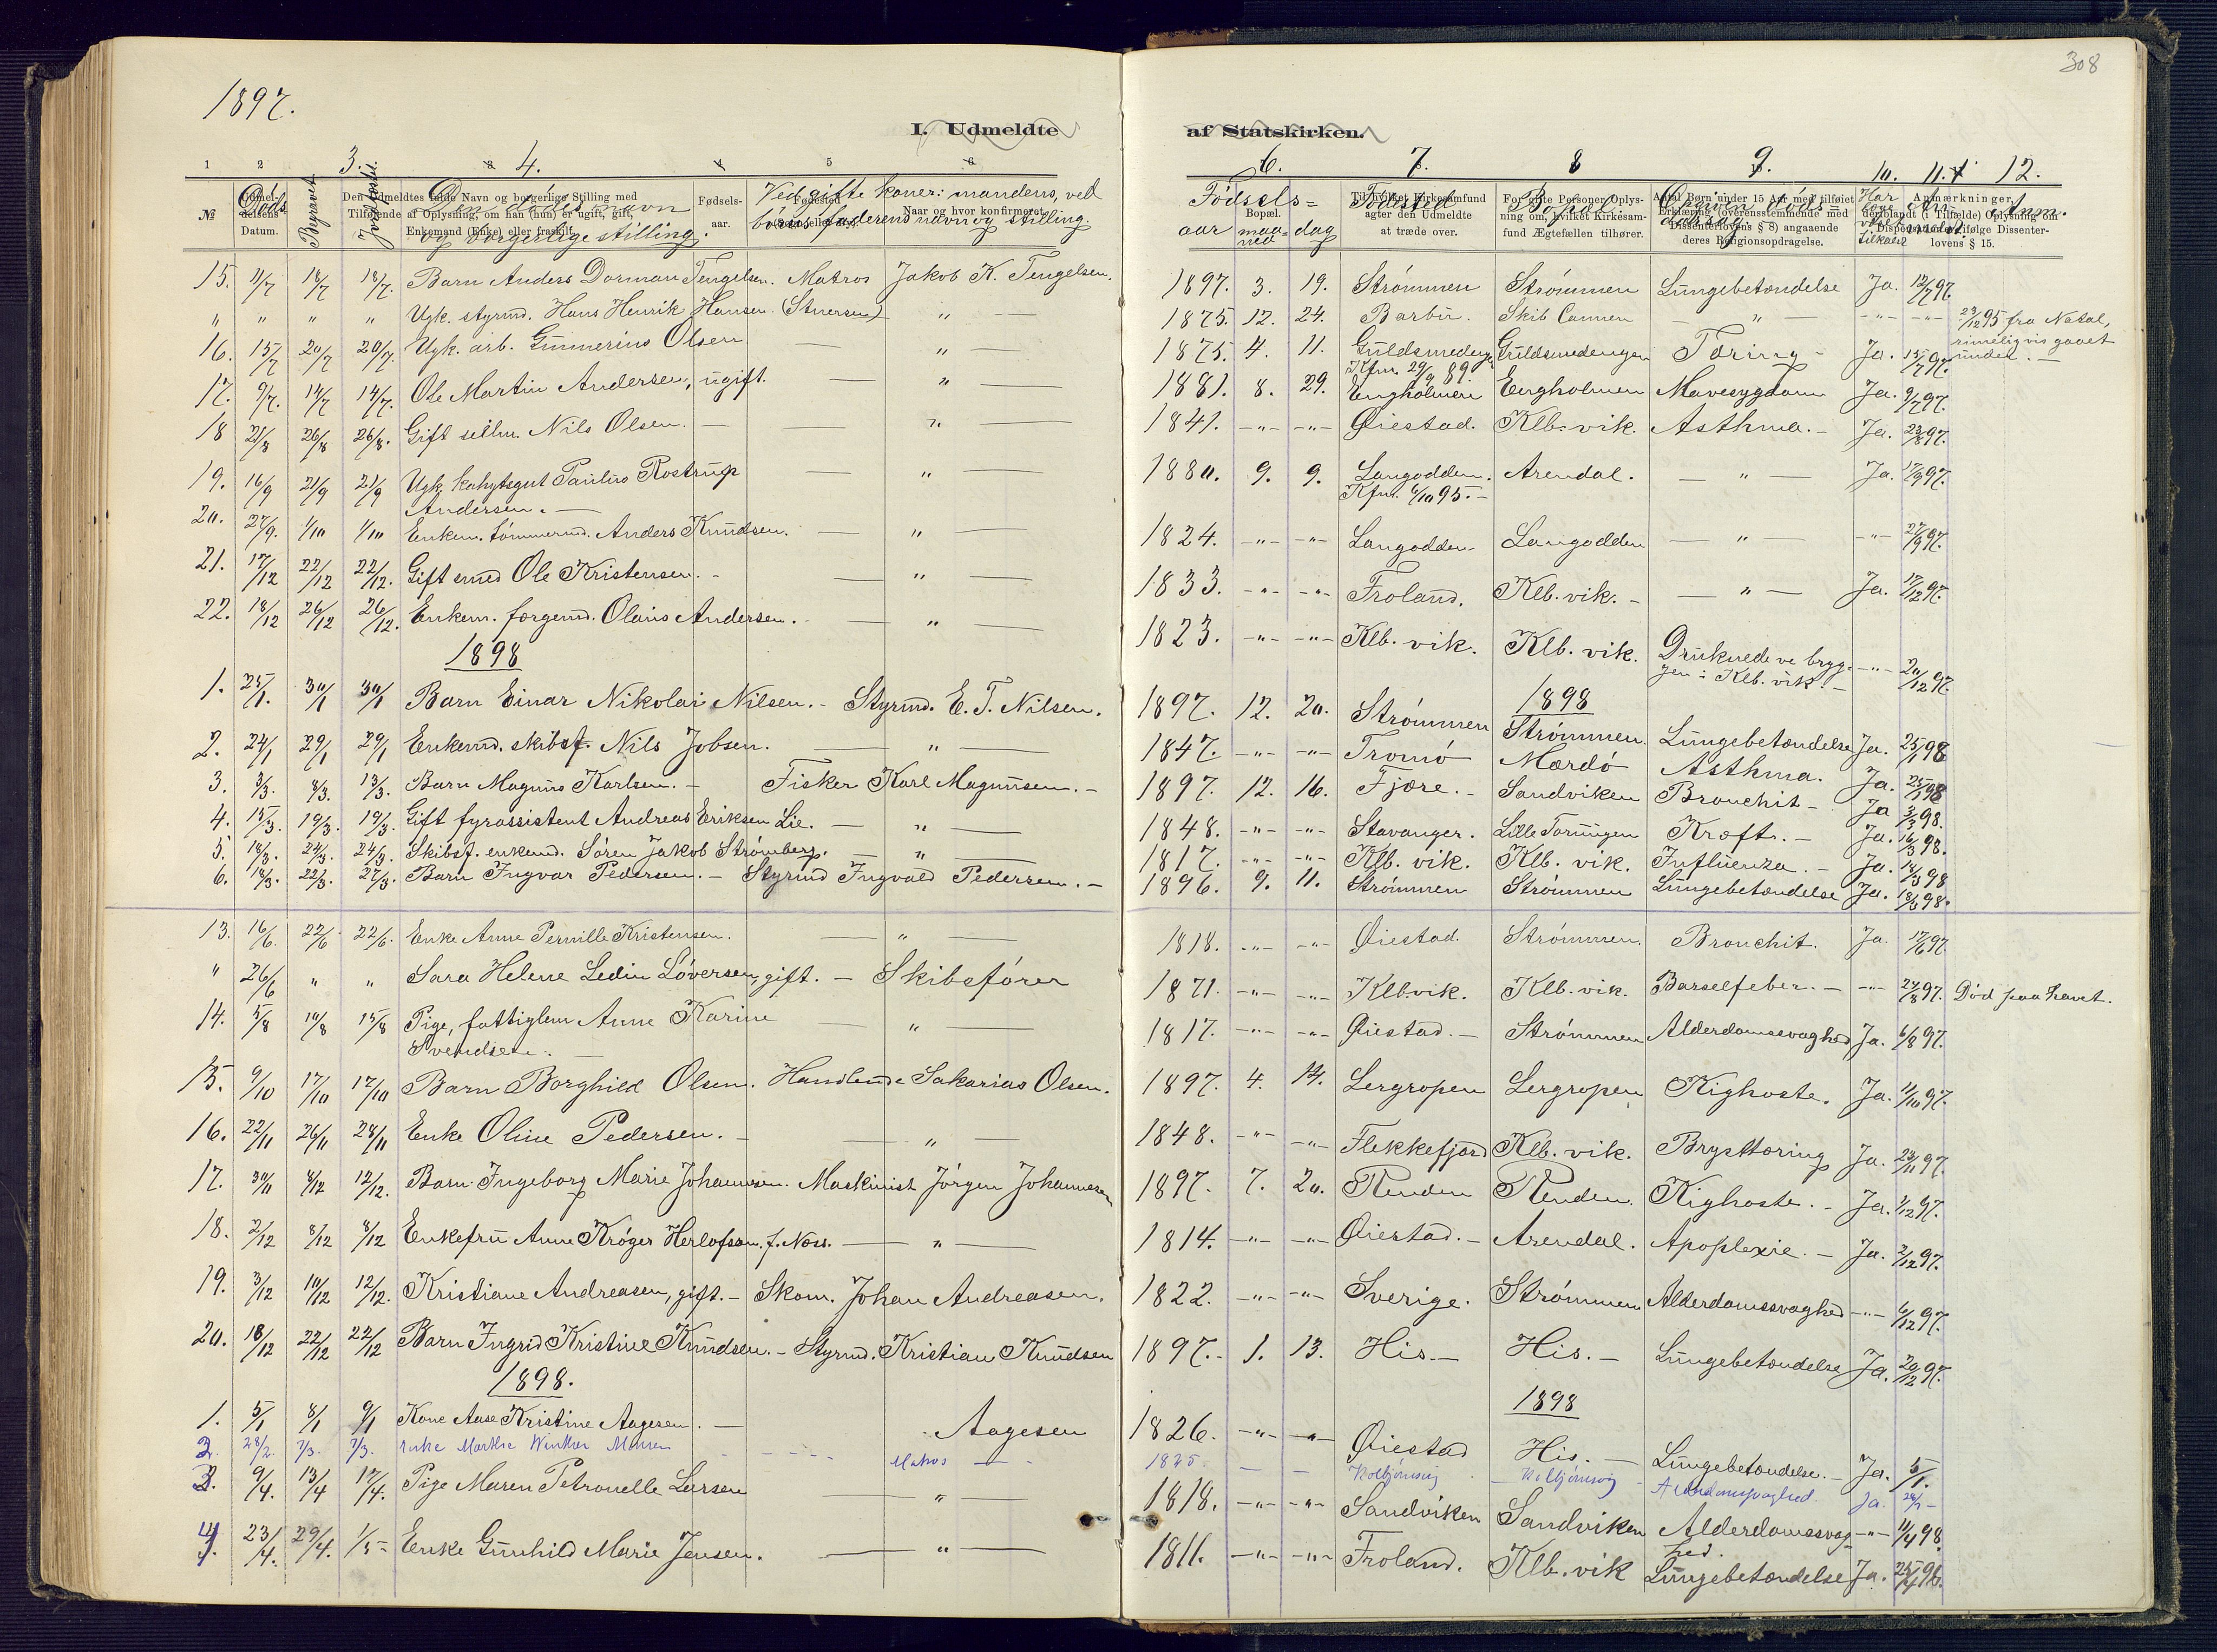 308
1897.
I. Udmeldte af Statskirken.
1 2 3. 4. 5 6. 7. 8 9. 10. 11. 12.
№ Døds Datum. Begravet Jordfæstet Den dødes navn og borgerlige stilling. Ved gifte koner: mandens, ved børn: faderens navn og stilling. Fødsels- aar maaned dag Fødested Bopæl Dødsaarsag Anm.
15. 11/7 18/7 18/7. Barn Anders Dorman Tengelsen. Matros Jakob K. Tengelsen. 1897. 3. 19. Strømmen Strømmen Lungebetændelse Ja. 12/7 97.
" " " " Ugk. styrmd. Hans Henrik Hansen (Snersen) — " — 1875. 12. 24. Barbu. Skib Carmen — " — -"- -"- 23/12 95 fra Natal, rimeligvis gaaet under. —
16. 15/7 20/7 20/7. Ugk. arb. Gunnerius Olsen — " — 1875. 4. 11. Guldsmedengen Guldsmedengen Tæring — Ja. 15/7 97.
17. 9/7. 14/7 14/7. Ole Martin Andersen, ugift. — " — 1881. 8. 29. Kfm. 29/9 89. Engholmen Engholmen Mavesygdom Ja. 9/7 97.
18 21/8 26/8 26/8. Gift sellm. Nils Olsen. — " — 1841. -"- -"- Øiestad. Klb. vik. Asthma. — Ja. 23/8 97.
19. 16/9 21/9 21/9 Ugk. kahytsgut Paulus Rostrup Andersen. — " — 1880. 9. 9. Langodden. Kfm. 6/10 95. — Arendal. — " — Ja. 17/9 97.
20. 27/9. 1/10 1/10 Enkem. tømmermd. Anders Knudsen. — " — 1824. -"- -"- Langodden Langodden — " — -"- 27/9 97.
21. 17/12 22/12 22/12. Gift smed Ole Kristensen. — " — 1833. -"- -"- Froland. Klb. vik. — — " — Ja. 17/12 97.
22. 18/12 26/12 26/12. Enkem. færgemd. Olaus Andersen. — " — 1823. -"- -"- Klb. vik. Klb. vik. Druknede ve bryggen i Klb. vik. — -"- 20/12 97.
1898 1898
1. 25/1. 30/1 30/1 Barn Einar Nikolai Nilsen. — Styrmd. E. T. Nilsen. 1897. 12. 20. Strømmen Strømmen. Lungebetændelse Ja. 25/1 98
2. 24/1 29/1 29/1 Enkemd. skibsf. Nils Jobsen. — " — 1847. -"- -"- Tromø Mærdø Asthma. Ja. 25/1 98
3. 3/3. 8/3. 13/3. Barn Magnus Karlsen. — Fisker Karl Magnusen. — 1897. 12. 16. Fjære. — Sandviken Bronchit — Ja 3/3 98.
4. 15/3. 19/3. 19/3. Gift fyrassistent Andreas Eriksen Lie. — " — 1848. -"- -"- Stavanger. Lille Torungen Kræft. — Ja. 16/3 98.
5. 18/3. 24/3. 24/3. Skibsf. enkemd. Søren Jakob Strømberg. — " — 1817. -"- -"- Klb. vik. Klb. vik. Influenza. — Ja. 19/3 98
6. 18/3. 22/3. 27/3. Barn Ingvar Pedersen. — Styrmd Ingvald Pedersen. — 1896. 9. 11. Strømmen Strømmen Lungebetændelse Ja. 18/3 98.
13. 16/6. 22/6 22/6. Enke Anne Pernille Kristensen. — " — 1818. -"- -"- Øiestad. Strømmen. Bronchit. Ja. 17/6 97
" 26/6 " " Sara Helene Ledin Løversen, gift. — Skibsfører 1871. -"- -"- Klb. vik. Klb. vik. Barselfeber. — -"- 24/8 97. Død paa havet.
14. 5/8 10/8 15/8 Pige, fattiglem Anne Karine Svendsen. — " — 1817. -"- -"- Øiestad. — Strømmen Alderdomssvaghed Ja. 6/8 97.
15. 9/10 17/10 17/10 Barn Borghild Olsen. Handlende Sakarias Olsen. 1897. 4. 14. Lergropen Lergropen Kighoste. Ja. 11/10 97.
16. 22/11 26/11 28/11 Enke Oline Pedersen. — " — 1848. -"- -"- Flekkefjord Klb. vik. Brysttæring Ja. 23/11 97.
17. 30/11 4/12 12/12. Barn Ingeborg Marie Johannesen. Maskinist Jörgen Johannesen 1897. 7. 20. Renden Renden. Kighoste. — Ja. 1/12 97.
18. 2/12 8/12 8/12 Enkefru Anne Krøger Herlofson. f. Næss. — " — 1814. -"- -"- Øiestad. — Arendal. Apoplexie. — Ja. 2/12 97.
19. 3/12 10/12 12/12. Kristiane Andreasen, gift. — Skom. Johan Andreasen. 1822. -"- -"- Sverige. Strømmen Alderdomssvaghed -"- 6/12 97.
20. 18/12 22/12 22/12 Barn Ingrid Kristine Knudsen. — Styrmd. Kristian Knudsen 1897. — 1. 13. His. — His. — Lungebetændelse Ja. 20/12 97.
1898. 1898
1. 5/1 8/1 9/1 Kone Aase Kristine Aagesen. — Aagesen 1826. -"- -"- Øiestad His. — Lungebetændelse. — Ja. 5/1.
2. 28/2. 7/3. 7/3. Enke Marthe Matros — 1825. — — Kolbjørnsvig — Kolbjørnsvig Ja.
3. 9/4. 13/4 17/4. Pige Maren Petronelle Larsen — " — 1818. -"- -"- Sandviken Sandviken Alderdomssvaghed. -"- 11/4 98.
4. 23/4. 29/4. 1/5 — Enke Gunhild Marie Jensen. — " — 1811. -"- -"- Froland. Klb. vik Lungebetændelse Ja. 25/4 98.